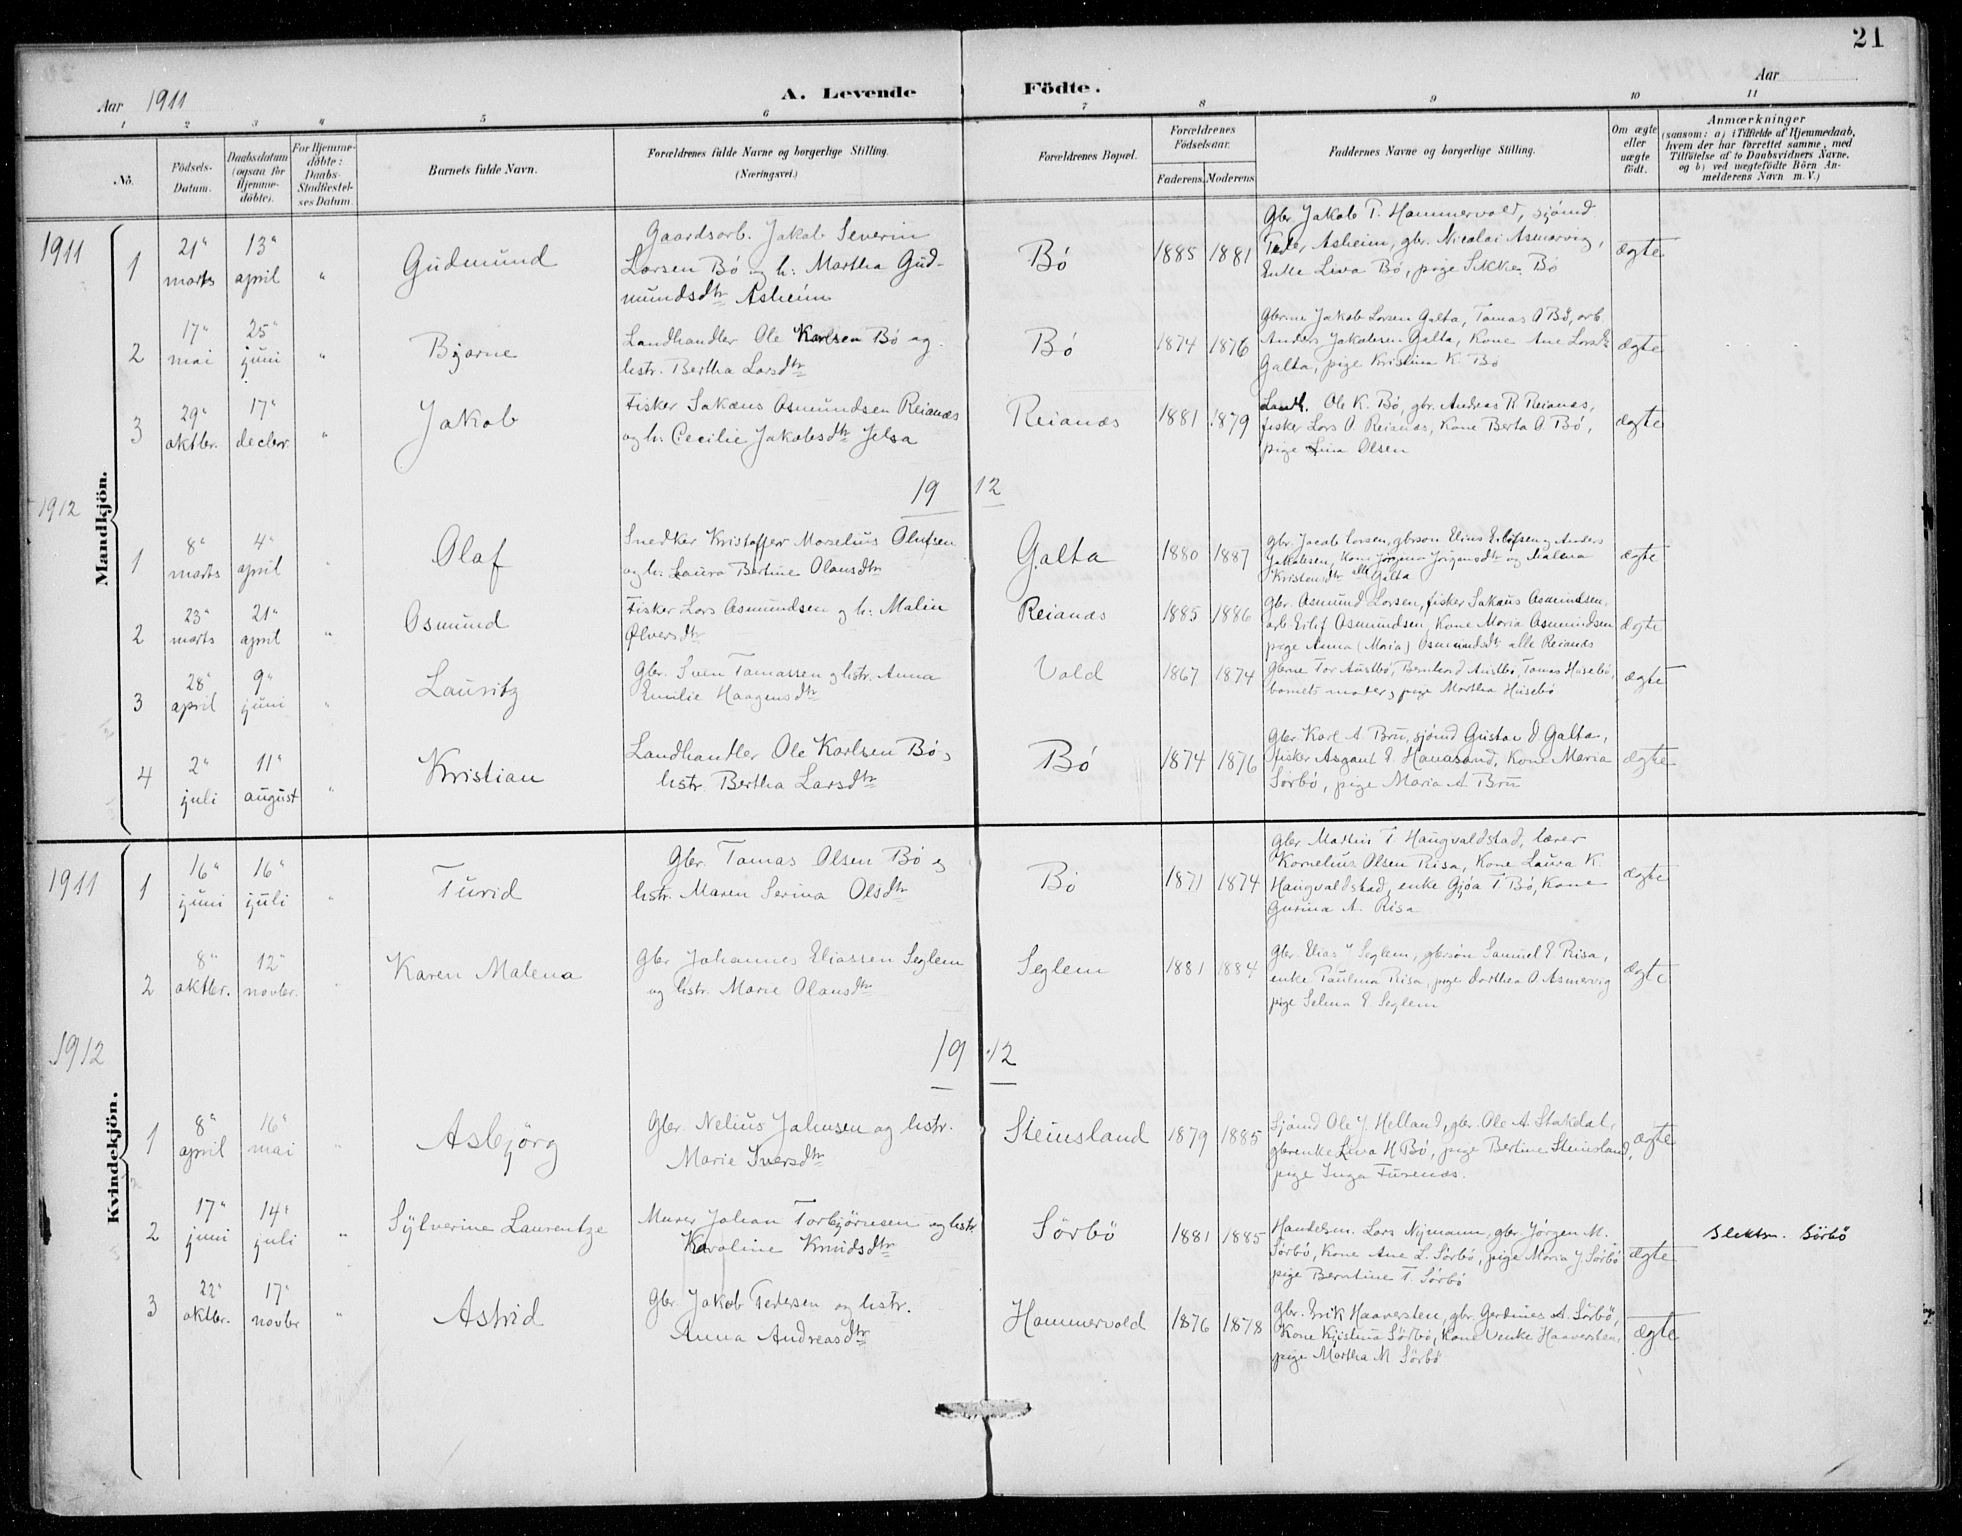 21
Aar 1911
A. Levende Födte.
Aar
1 2 3 4 5 6 7 8 9 10 11
No.
Födsels-Datum.
Daabsdatum (ogsaa for Hjemme-döbte).
For Hjemme-döbte: Daabs-Stadfæstel-ses Datum.
Barnets fulde Navn.
Forældrenes fulde Navne og borgerlige Stilling.
(Næringsvei.)
Forældrenes Bopæl.
Forældrenes Födselsaar.
Faderens. Moderens.
Faddernes Navne og borgerlige Stilling.
Om ægte eller uægte födt.
Anmærkninger
(saasom: a) i Tilfælde af Hjemmedaab,
hvem der har forrettet samme, med
Tilföielse af to Daabsvidners Navne,
og b) ved uægtefödte Börn An-
melderens Navn m. V.)
Mandkjön.
1911
1 21" marts 13" april " Gudmund
Gaardsarb. Jakob Severin
Larsen Bö og h: Martha Gud-
mundsdtr Asheim
Bö 1885 1881
Gbr. Jakob T. Hammervold, sjömd
Peder Asheim, gbr. Nicolai Asmarvig,
Enke Liva Bö, pige Sikke Bö
ægte
2 17" mai 25" juni " Bjarne
Landhandler Ole Karlsen Bö og
hstr. Bertha Larsdtr
Bö 1874 1876
Gbrne Jakob Larsen Galta, Tomas O Bö, arb.
Anders Jakobsen Galta, Kone Ane Larsdtr
Galta, pige Kristina K. Bö
ægte
3 29" oktbr. 17" decbr. " Jakob
Fisker Sakæus Osmundsen Reianæs
og h: Cecilie Jakobsdtr Jelsa
Reianæs 1881 1879
Landh. Ole K. Bö, gbr. Andreas R. Reianæs,
fisker Lars O. Reianæs, Kone Berta O Bö,
pige Lina Olsen
ægte
1912
19 12
1 8" marts 4" april " Olaf
Snedker Kristoffer Morselius Olufsen
og h: Laura Bertine Olausdtr
Galta 1880 1887
Gbr. Jacob Larsen, gbrsøn Elius Eilefsen og Anders
Jakobsen, Kone Jörgena Jörgensdtr og Malena
Kristensdtr alle Galta
ægte
2 23" marts 21" april " Osmund
Fisker Lars Osmundsen og h: Malin
Ølversdtr
Reianæs 1885 1886
Gbr. Osmund Larsen, fisker Sakæus Osmundsen,
arb. Eilif Osmundsen, Kone Maria Osmundsen
pige Anna (Maria) Osmundsdtr alle Reianæs
ægte
3 28" april 9" juni " Lauritz
Gbr. Sven Tomassen og hstr. Anna
Emilie Haagensdtr
Vald 1867 1874
Gbrne Tor Austbö, Bernhard Austbö, Tomas Husebö,
barnets moder, pige Martha Husebö
ægte
4 2" juli 11" august " Kristian
Landhandler Ole Karlsen Bö,
hstr. Bertha Larsdtr
Bö 1874 1876
Gbr. Karl A. Bru, sjömd Gustav D Galta,
fisker Asgaut E. Hanasand, Kone Maria
Sörbö, pige Maria A. Bru
ægte
Kvindekjön.
1911
1 16" juni 16" juli " Turid
Gbr. Tomas Olsen Bö og
hstr. Maren Serina Olsdtr
Bö 1871 1874
Gbr Mattis T. Haugvaldstad, lærer
Kornelius Olsen Risa, Kone Laura K.
Haugvaldstad, enke Gjöa T. Bö, Kone
Gurina A. Risa
ægte
2 8" oktbr. 12" novbr. " Karen Malena
Gbr Johannes Eliassen Seglem
og hstr. Marie Olausdtr
Seglem 1881 1884
Gbr. Elias J Seglem, gbrsön Samuel E. Risa,
enke Paulina Risa, pige Dorthea O. Asmervig
pige Selma E. Seglem
ægte
1912
19 12
1 8" april 16" mai " Asbjörg
Gbr. Nelius Johnsen og hstr.
Marie Iversdtr
Steinsland 1879 1885
Sjömd Ole J. Helland, gbr. Ole A. Stakdal,
gbrenke Liva H Bö, pige Bertine Steinsland,
pige Inga Furenæs.
ægte
2 17" juni 14" juli " Sylverine Laurentze
Murer Johan Torbjörnsen og hstr
Karoline Knudsdtr
Sörbö 1881 1885
Handelsm. Lars Nymann, gbr. Jörgen M.
Sörbö, Kone Ane L. Sörbö, pige Maria J Sörbö
pige Berntine T. Sörbö
ægte
Slektsn. Sörbö
3 22" oktbr. 17" novbr " Astrid
Gbr. Jakob Pedersen og hstr.
Anna Andreasdtr
Hammervold 1876 1878
Gbr. Erik Haaversten, gbr. Gerdines A. Sörbö,
Kone Kjistina Sörbö, Kone Venke Haaversten,
pige Martha M Sörbö
ægte